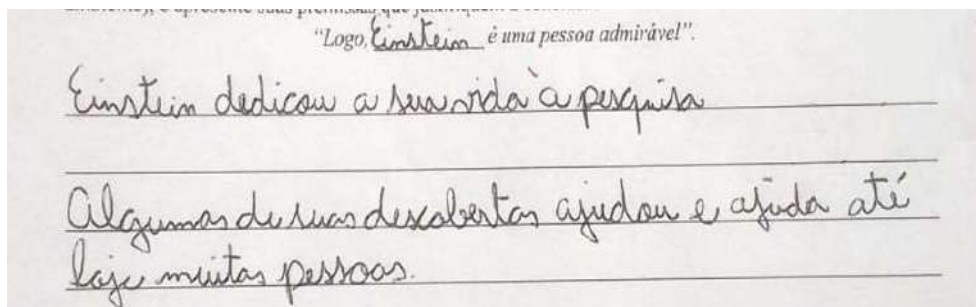 "Logo, Einstein é uma pessoa admirável".
Einstein dedicou a sua vida à pesquisa
Algumas de suas descobertas ajudou e ajuda até
hoje muitas pessoas.